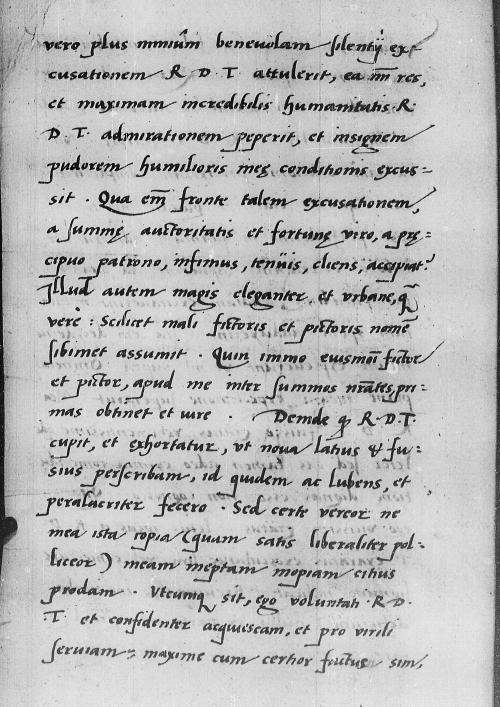 vero plus nimiũm benevolam silentij ex-
cusationem R D T attulerit, ea m̃ res,
et maximam incredibilis humanitatis R
D T. admirationem peperit, et insignem
pudorem humilioris meę conditionis excus-
sit. Qua em̃ fronte talem excusationem,
a summę auctoritatis et fortunę viro, a prę:
cipuo patrono, infimus, tenuis, cliens, accipiat?
Illud autem magis eleganter et urbane, q̃
verè: Scilicet mali fictoris et pictoris nomẽ
sibimet assumit. Quin immo eiusmõi fictor
et pictor, apud me inter summos nr̃ates, pri-
mas obtinet et iure. Deinde q R.D.T.
cupit, et exhortatur, ut nova latius & fu:
sius perscribam, id quidem ac lubens, et
peralacriter fecero. Sed certe vereor ne
mea ista copia (quam satis liberaliter pol-
liceor) meam ineptam inopiam citius
prodam. Utcumq sit, ego voluntati R D.
T. et confidenter acquiescam, et pro virili
serviam: maxime cum certior factus sim,